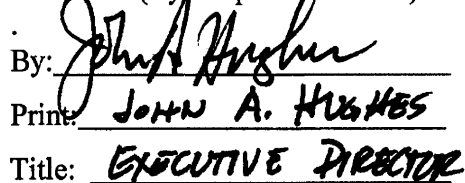 By: John A Hughes
Print: JOHN A. HUGHES
Title: EXECUTIVE DIRECTOR